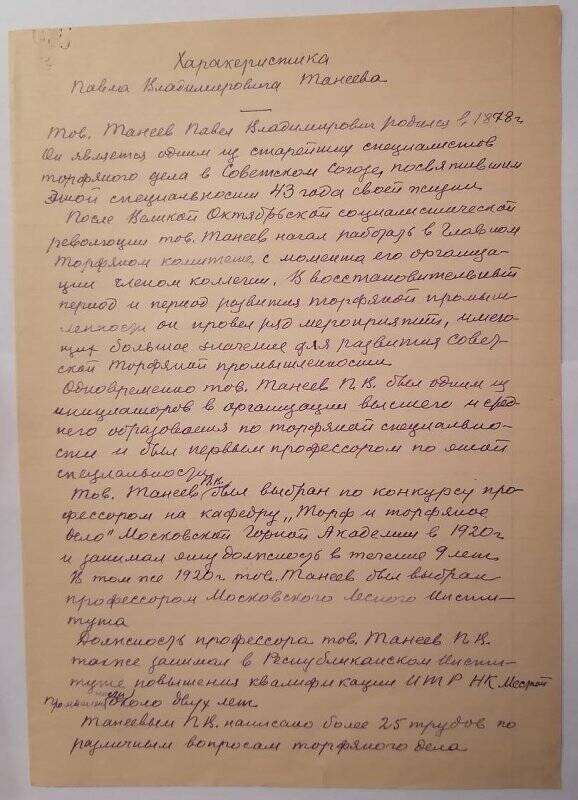 Характеристика
Павла Владимировича Танеева
Тов. Танеев Павел Владимирович родился в 1878 г.
Он является одним из старейших специалистов
торфяного дела в Советском Союзе, посвятившим
этой специальности 43 года своей жизни
После Великой Октябрьской социалистической
революции тов. Танеев начал работать в Главном
Торфяном комитете с момента его организа-
ции членом коллегии. В восстановительный
период и период развития торфяной промыш-
ленности он провел ряд мероприятий, имею-
щих большое значение для развития Совет-
ской Торфяной промышленности
Одновременно тов. Танеев П. В. был одним из
инициаторов в организации высшего и сред-
него образования по торфяной специально-
сти и был первым профессором по этой
специальности
Тов. Танеев П.В. был выбран по конкурсу про-
фессором на кафедру "Торф и торфяное
дело" Московской Горной Академии в 1920 г
и занимал эту должность в течение 9 лет
В том же 1920 г тов. Танеев был выбран
профессором Московского Лесного Инсти-
тута
Должность профессора тов. Танеев П. В.
также занимал в Республиканском Инсти-
туте повышения квалификации ИТР НК Местной
промышленности около двух лет
Танеевым П. В. написано более 25 трудов по
различным вопросам торфяного дела